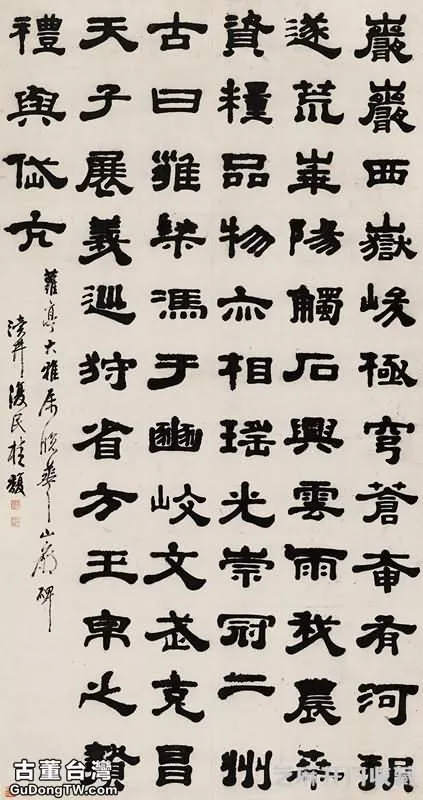 巖巖西嶽峻極穹蒼奄有河朔
遂荒崋陽觸石興雲雨我農桑
資糧品物亦相瑤光崇冠二州
古曰雍梁馮于豳岐文武克昌
天子展義巡狩省方玉帛之贄
禮與岱亢
大雅屬臨華山廟碑
瀆井復民桂馥
古董台灣
GuDongTW.com